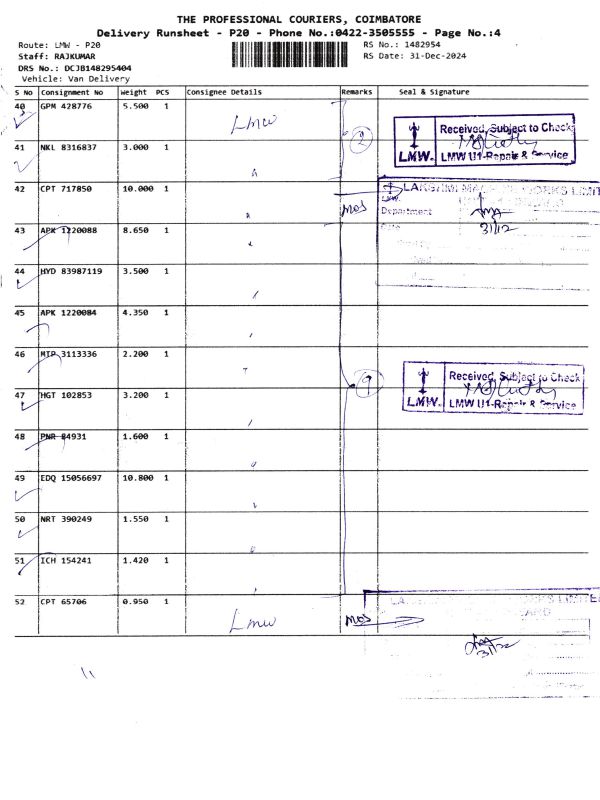 THE PROFESSIONAL COURIERS, COIMBATORE
Delivery Runsheet - P20 - Phone No.:0422-3505555 - Page No.:4
Route: LMW - P20
RS No.: 1482954
Staff: RAJKUMAR
RS Date: 31-Dec-2024
DRS No.: DCJB148295404
Vehicle: Van Delivery
S No Consignment No Weight PCS Consignee Details Remarks Seal & Signature
40 GPM 428776 5.500 1 Lmw
2
Received, Subject to Check
LMW. LMW U1-Repair & Service
41 NKL 8316837 3.000 1 "
42 CPT 717850 10.000 1 " MOS
LAKSHMI MACHINE WORKS LIMIT
LMW.
Department
31/12
43 APK 1220088 8.650 1 "
44 HYD 83987119 3.500 1
45 APK 1220084 4.350 1
46 MTP 3113336 2.200 1
9
Received, Subject to Check
LMW. LMW U1-Repair & Service
47 HGT 102853 3.200 1
48 PNR 84931 1.600 1
49 EDQ 15056697 10.800 1
50 NRT 390249 1.550 1
51 ICH 154241 1.420 1
52 CPT 65706 0.950 1 Lmw MOS
31/12